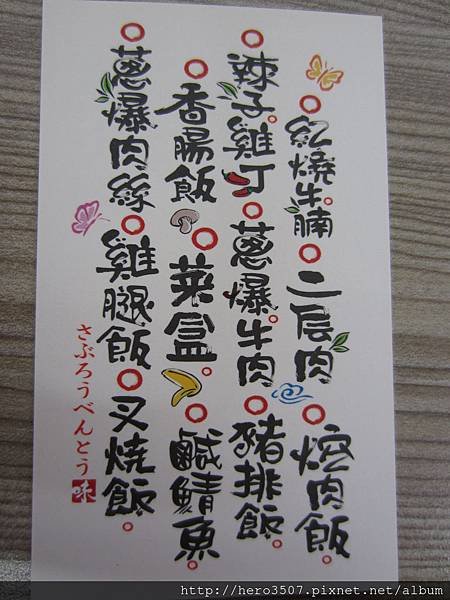 紅燒牛腩 二层肉 焢肉飯
辣子雞丁 蔥爆牛肉 豬排飯
香腸飯 菜盒 鹹鯖魚
蔥爆肉絲 雞腿飯 叉燒飯
さぶろうべんとう 味
http://hero3507.pixnet.net/album